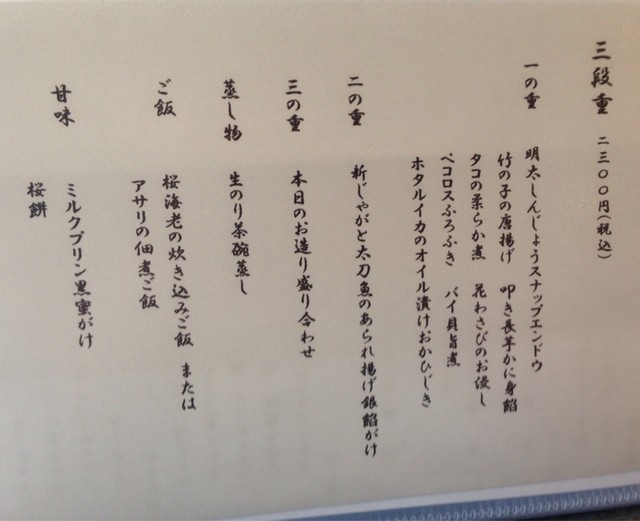 三段重 二三〇〇円(税込)
一の重 明太しんじょうスナップエンドウ
竹の子の唐揚げ 叩き長芋かに身餡
タコの柔らか煮 花わさびのお浸し
ペコロスふろふき バイ貝旨煮
ホタルイカのオイル漬けおかひじき
二の重 新じゃがと太刀魚のあられ揚げ銀餡がけ
三の重 本日のお造り盛り合わせ
蒸し物 生のり茶碗蒸し
ご飯 桜海老の炊き込みご飯 または
アサリの佃煮ご飯
甘味 ミルクプリン黒蜜がけ
桜餅